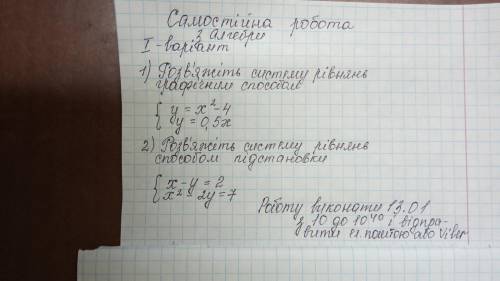 Самостійна робота
з алгебри
I-варіант
1) Розв'яжіть систему рівнянь
графічним способом
{ y = x² - 4
y = 0,5x
2) Розв'яжіть систему рівнянь
способом підстановки
{ x - y = 2
x² - 2y = 7
Роботу виконати 13.01
з 10 до 10⁴⁰ і відпра-
вити ел. поштою або Viber